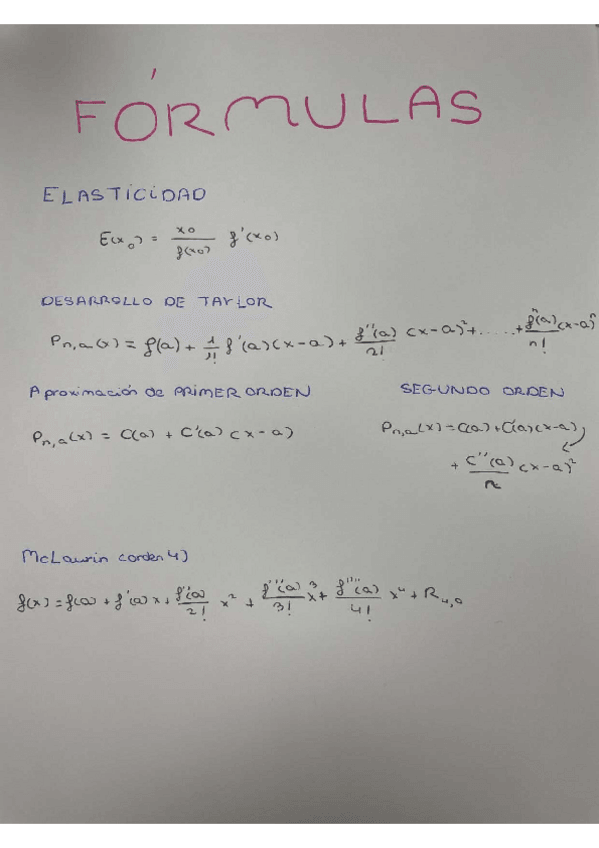 FÓRMULAS
ELASTICIDAD
E(x₀) = x₀/f(x₀) f'(x₀)
DESARROLLO DE TAYLOR
Pn,a(x) = f(a) + 1/1! f'(a)(x-a) + f''(a)/2! (x-a)² + ...... + fⁿ(a)/n! (x-a)ⁿ
Aproximación de PRIMER ORDEN
Pn,a(x) = C(a) + C'(a) (x-a)
SEGUNDO ORDEN
Pn,a(x) = C(a) + C'(a)(x-a)
+ C''(a)/ (x-a)²
McLaurin (orden 4)
f(x) = f(a) + f'(a) x + f''(a)/2! x² + f'''(a)/3! x³ + f''''(a)/4! x⁴ + R₄,₀